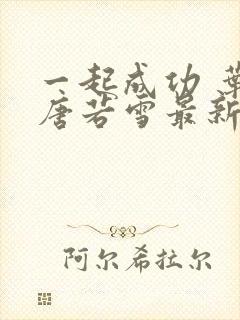 一起成功 葉
唐若雪最新
阿尔希拉尔